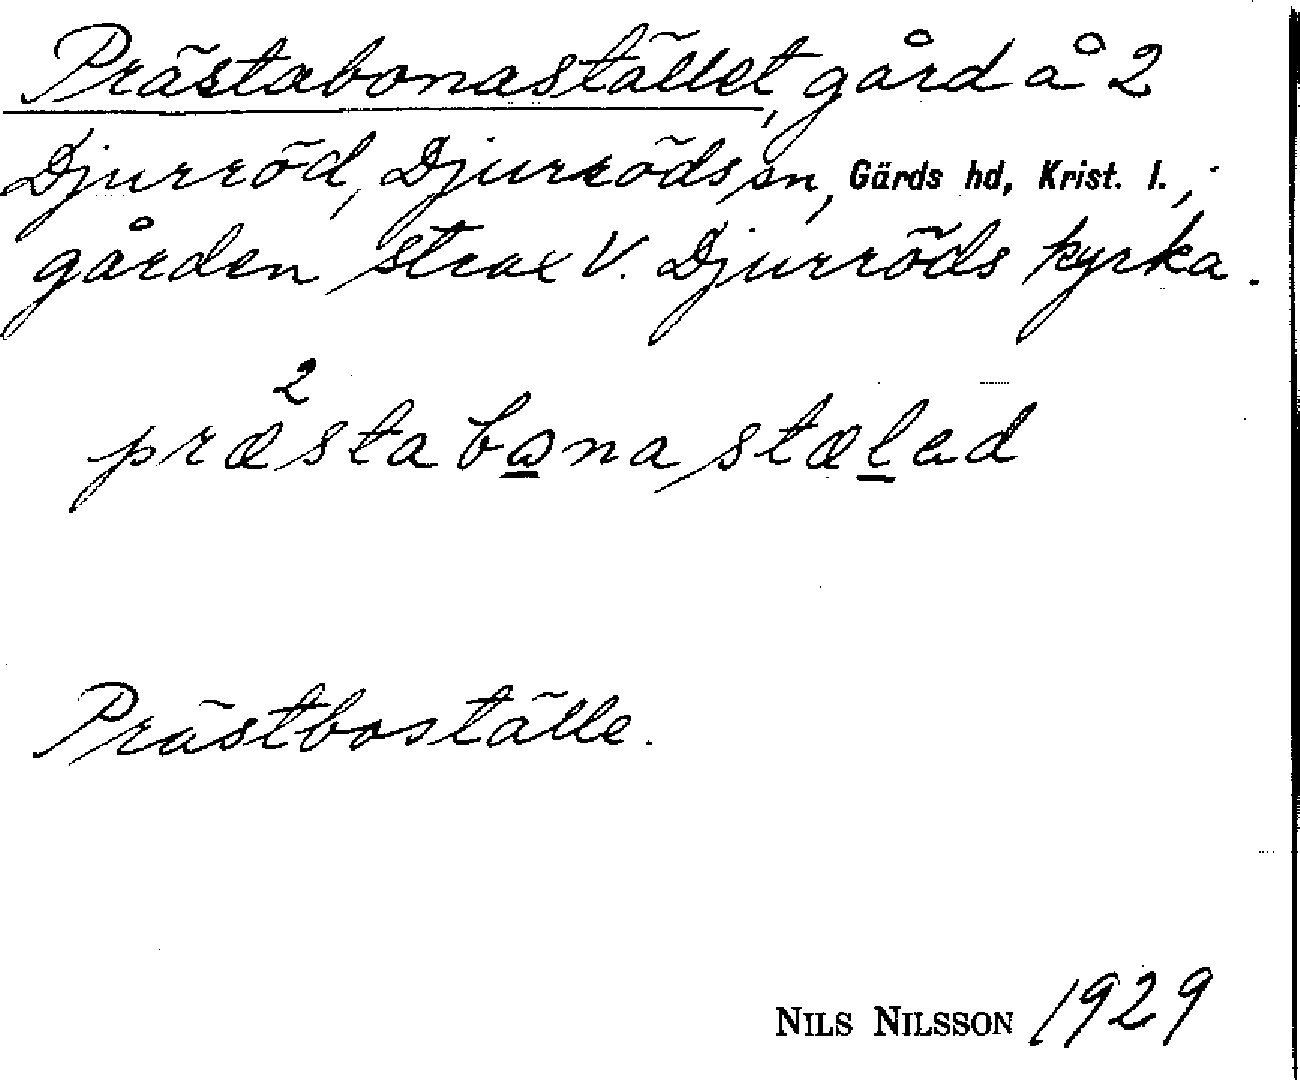 Prästabonastället, gård å 2
Djurröd, Djurröds sn, Gärds hd, Krist. l.,
gården strax V. Djurröds kyrka.
2
præstabonastæled
Prästboställe.
NILS NILSSON 1929